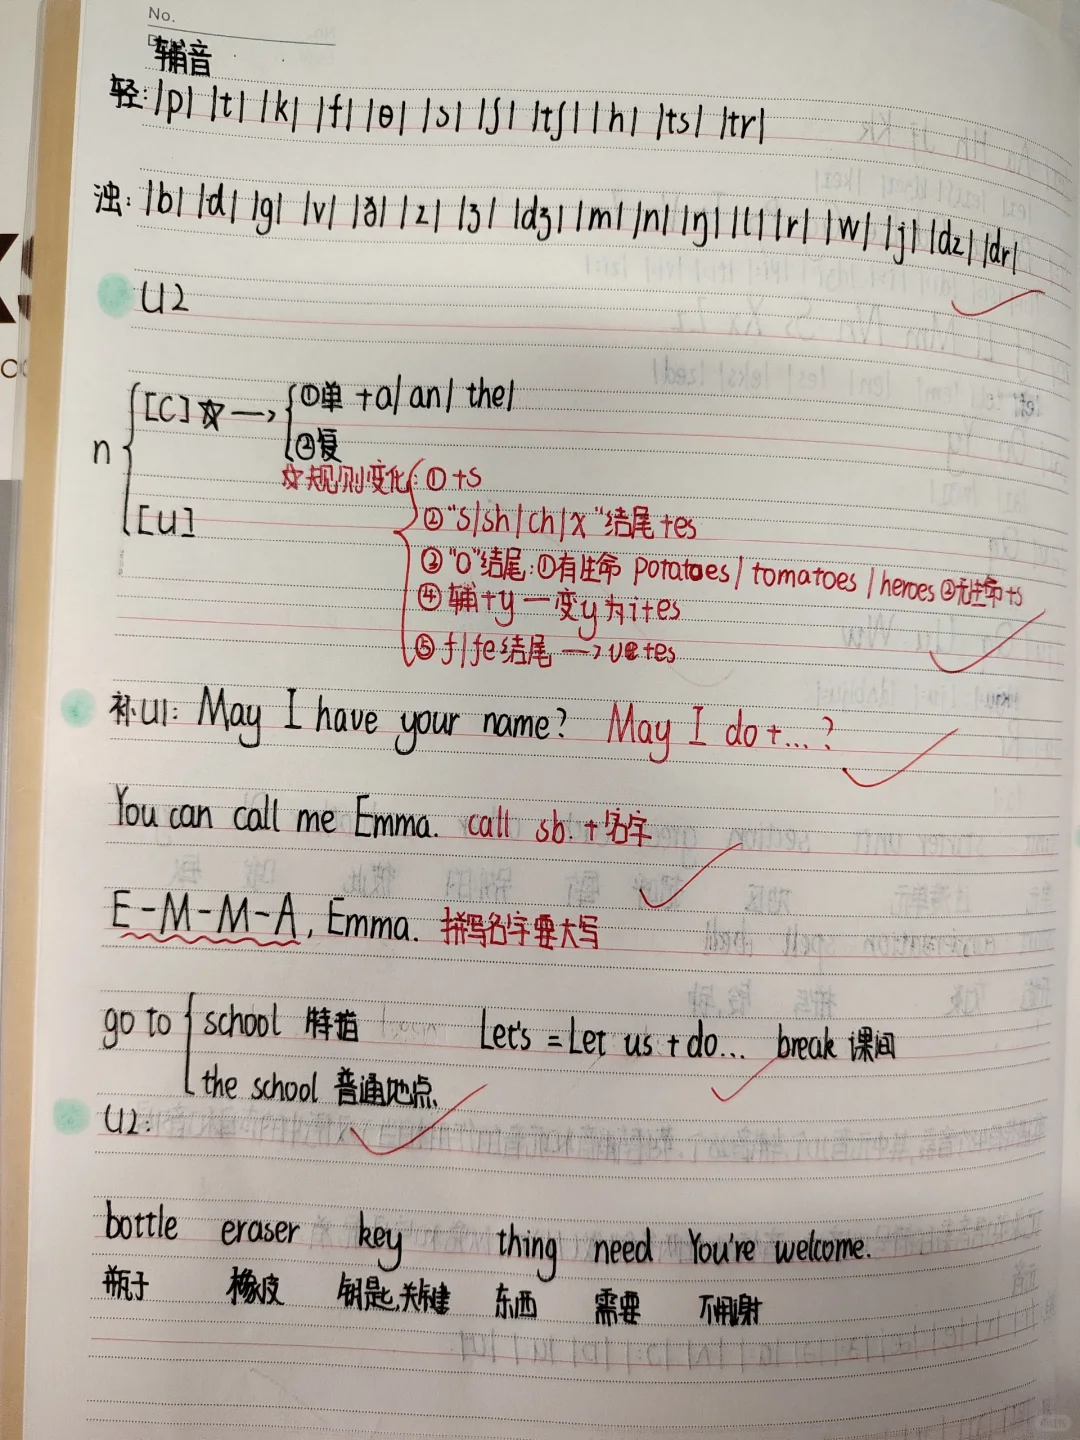 No.
辅音
轻: |p| |t| |k| |f| |θ| |s| |ʃ| |tʃ| |h| |ts| |tr|
浊: |b| |d| |g| |v| |ð| |z| |ʒ| |dʒ| |m| |n| |ŋ| |l| |r| |w| |j| |dz| |dr|
U2
n
[C] ☆ → ①单 +a/ an/ the/
②复
[U]
☆规则变化: ① +s
② "s/sh/ch/x"结尾+es
③ "o"结尾: ①有生命 potatoes/ tomatoes / heroes ②无生命+s
④ 辅+y — 变y为i+es
⑤ f/fe结尾 → ve+es
补U1: May I have your name? May I do+...?
You can call me Emma. call sb. +名字
E-M-M-A, Emma. 拼写名字要大写
go to
school 特指 Let's = Let us + do... break 课间
the school 普通地点
U2:
bottle eraser key thing need You're welcome.
瓶子 橡皮 钥匙,关键 东西 需要 不用谢